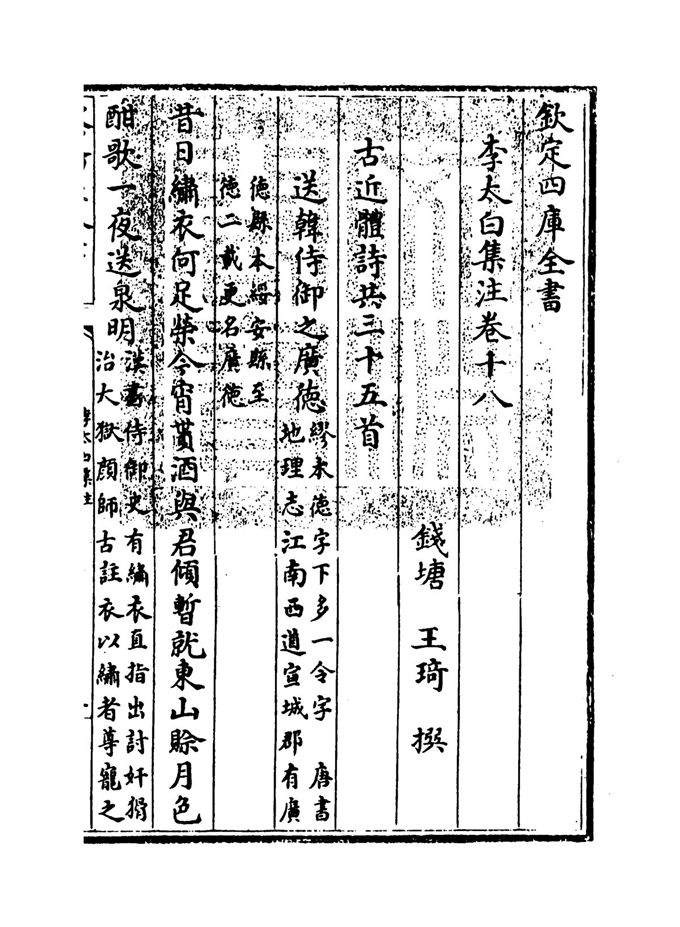 欽定四庫全書
李太白集注卷十八
錢塘 王琦 撰
古近體詩共三十五首
送韓侍御之廣德
繆本德字下多一令字 唐書
地理志江南西道宣城郡有廣
德縣本綏安縣至
德二載更名廣德
昔日繡衣何足榮今宵貰酒與君傾暫就東山賒月色
酣歌一夜送泉明
漢書侍御史有繡衣直指出討奸猾
治大獄顔師古註衣以繡者尊寵之
李太白集注